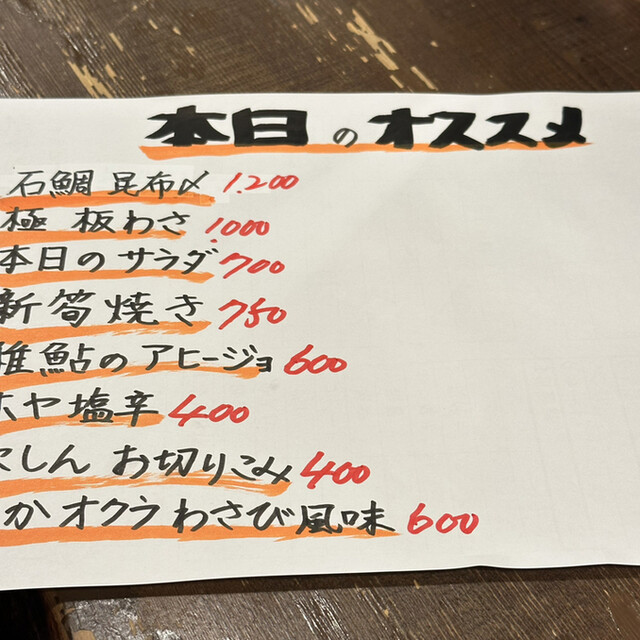 本日のオススメ
石鯛 昆布〆 1.200
極 板わさ 1.000
本日のサラダ 700
新筍焼き 750
稚鮎のアヒージョ 600
ホヤ塩辛 400
にしん お切りこみ 400
かオクラわさび風味 600